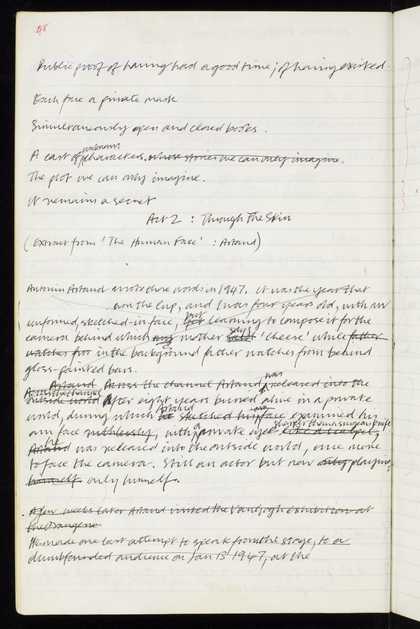 48
Public proof of having had a good time; of having existed
Each face a private mask
Simultaneously open and closed books.
unknown
A cast of characters, whose stories we can only imagine.
The plot we can only imagine.
It remains a secret
Act 2 : Through the Skin
(Extract from 'The Human Face' : Artaud)
Antonin Artaud wrote those words in 1947. It was the year that
won the Cup, and I was four years old, with an
unformed, sketched-in face, just learning to compose it for the
camera behind which my mother says 'cheese' while father
watches in the background father watches from behind
gloss-painted bars.
Artaud Across the channel Artaud was released into the
outside world After eight years buried alive in a private
world, during which Artaud sketched his face examined his
own face ruthlessly, with a private eye
Artaud he was released into the outside world, once more
to face the camera. Still an actor but now only playing
himself only himself.
A few weeks later Artaud visited the Van Gogh exhibition at
He made one last attempt to speak from the stage, to a
dumbfounded audience on Jan 13 1947, at the